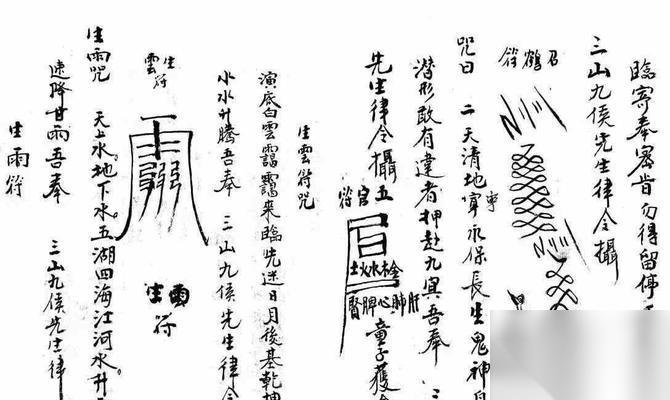 臨寄奉密旨勿得留停
三山九侯先生律令攝
召鶴符
咒曰 二天清地寧永保長生鬼神自
潛形敢有違者押赴九冥吾奉 三
先生律令攝
五官符
金木水火土
肝肺心脾腎
童子獲
生雲符咒
演底白雲靄靄來臨先迷日月後基乾坤
水水升騰吾奉 三山九侯先生律令
生雲符
雲生符
生雨咒 天上水。地下水。五湖四海江河水升
速降甘雨吾奉 三山九侯先生律
生雨符